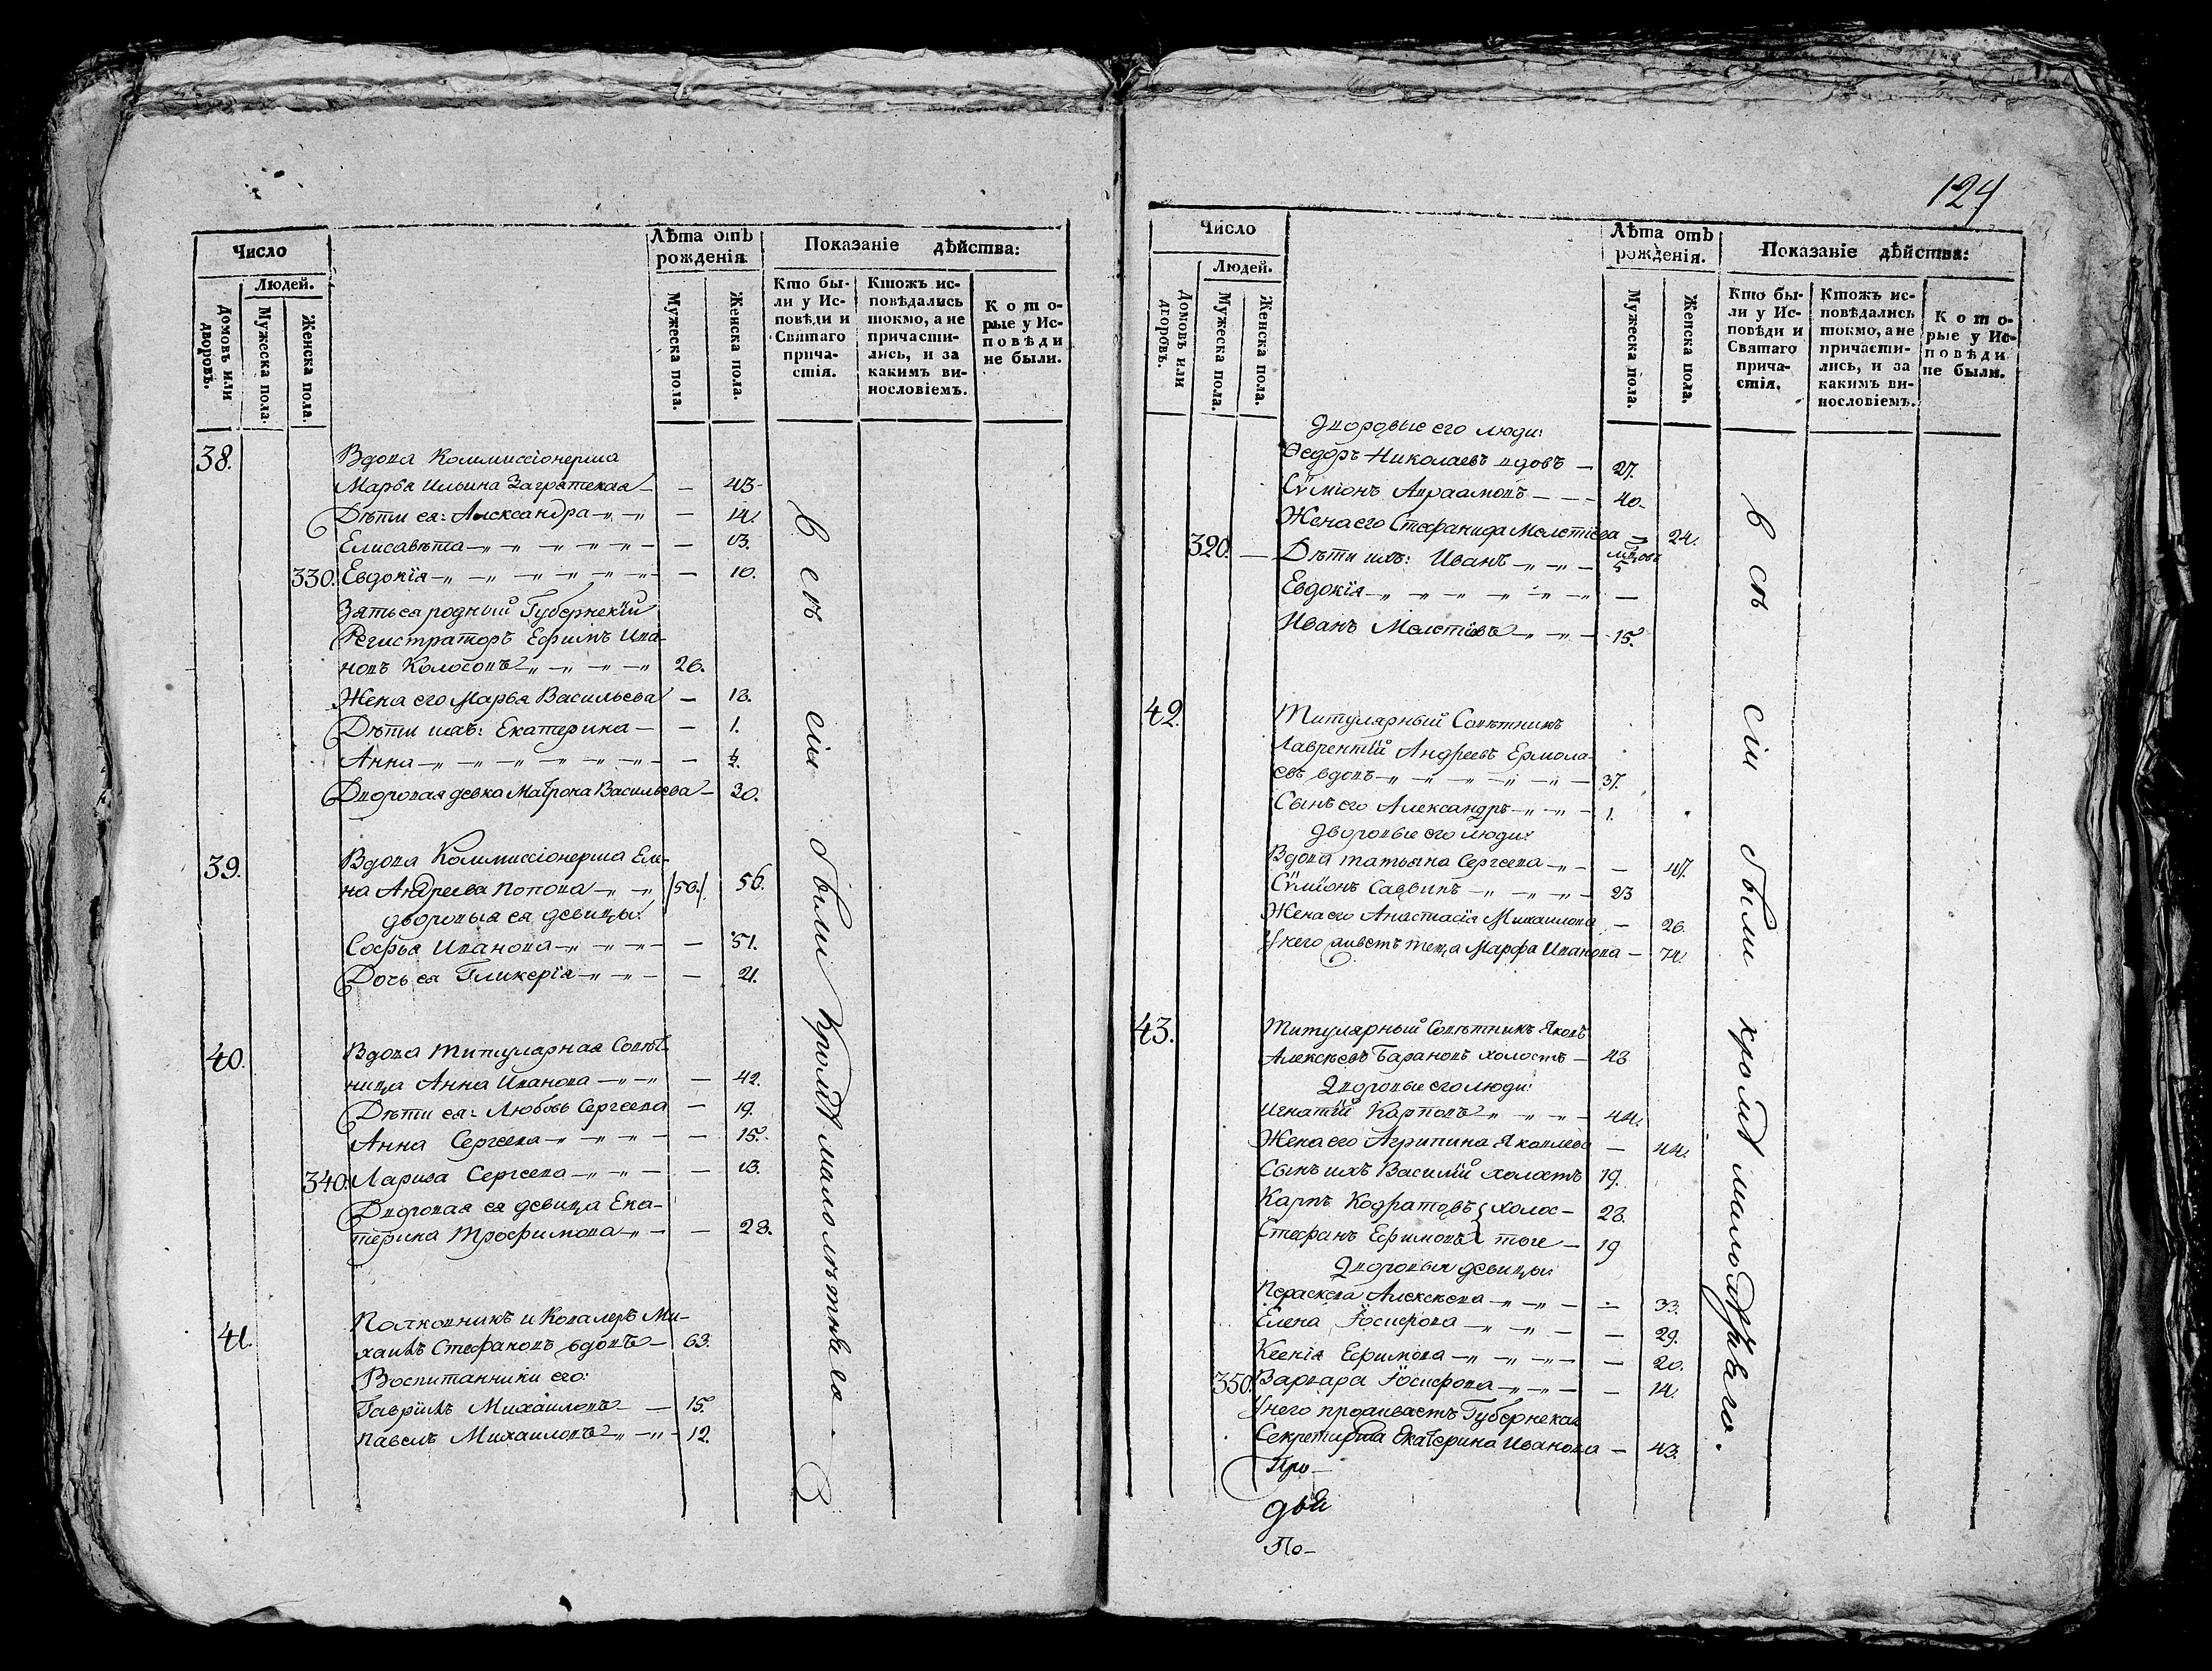 124
Число
Людей.
Домовъ или дворовъ.
Мужеска пола.
Женска пола.
Лѣта отъ рожденія.
Мужеска пола.
Женска пола.
Показаніе дѣйства:
Кто бы-
ли у Ис-
повѣди и
Святаго
прича-
стія.
Ктожъ ис-
повѣдались
токмо, а не
причасти-
лись, и за
какимъ ви-
нословіемъ.
Кото-
рые у Ис-
повѣди
не были.
38. Вдова Коммиссіонерша
Марѳа Ильина — — 43.
Дѣти ея: Александра — — 14.
Елисавѣта — — 13.
330. Евдокія — — 10.
Зять ея родный Губернскій
Регистраторъ Ефимъ Ива-
новъ Колосовъ — 26.
Жена его Марѳа Васильева — 18.
Дѣти ихъ: Екатерина — — 1.
Анна — — ½.
Дворовая девка Матрона Васильева — 30.
39. Вдова Коммиссіонерша Еле-
на Андреева Попова — /50./ 56.
дворовыя ея девицы:
Софья Иванова — — 51.
Дочь ея Гликерія — — 21.
40. Вдова Титулярная Совѣт-
ница Анна Иванова — — 42.
Дѣти ея: Любовь Сергеева — 19.
Анна Сергеева — — 15.
340. Лариса Сергеева — — 13.
Дворовая ея девица Ека-
терина Трофимова — — 28.
41. Полковникъ и Кавалеръ Ми-
хаилъ Стефановъ вдовъ — 63.
Воспитанники его:
Гавріилъ Михаиловъ — 15.
Павелъ Михаиловъ — 12.
всѣ сіи были кромѣ малолѣтнѣго.
Число
Людей.
Домовъ или дворовъ.
Мужеска пола.
Женска пола.
Лѣта отъ рожденія.
Мужеска пола.
Женска пола.
Показаніе дѣйства:
Кто бы-
ли у Ис-
повѣди и
Святаго
прича-
стія.
Ктожъ ис-
повѣдались
токмо, а не
причасти-
лись, и за
какимъ ви-
нословіемъ.
Кото-
рые у Ис-
повѣди
не были.
Дворовые его люди:
Ѳедоръ Николаевъ вдовъ — 27.
Сѵміонъ Авраамовъ — 40.
Жена его Стефанида Мелетіева — 24.
320. — Дѣти ихъ: Иванъ — мцовъ 5
Евдокія — —
Иванъ Мелетіевъ — 15.
42. Титулярный Совѣтникъ
Лаврентій Андреевъ Ермола-
евъ вдовъ — 37.
Сынъ его Александръ — 1.
Дворовые его люди:
Вдова татьяна Сергеева — — 47.
Сѵміонъ Саввинъ — 23
Жена его Анастасія Михаилова — 26.
У него живетъ теща Марфа Иванова — 74.
43. Титулярный Совѣтникъ Яковъ
Алексѣевъ Барановъ холостъ — 48
Дворовые его люди:
Игнатій Карповъ — 44.
Жена его Агрипина Яковлева — 44.
Сынъ ихъ Василій холостъ 19.
Карпъ Кодратовъ } холос- 28.
Стефанъ Ефимовъ } тые — 19
Дворовыя девицы:
Параскева Алексѣева — — 33.
Елена Іосифова — — 29.
Ксенія Ефимова — — 20.
350. Варвара Іосифова — — 14.
У него проживаетъ Губернская
Секретарша Екатерина Иванова — 43.
Про-
По-
всѣ сіи были кромѣ малолѣтнѣго.